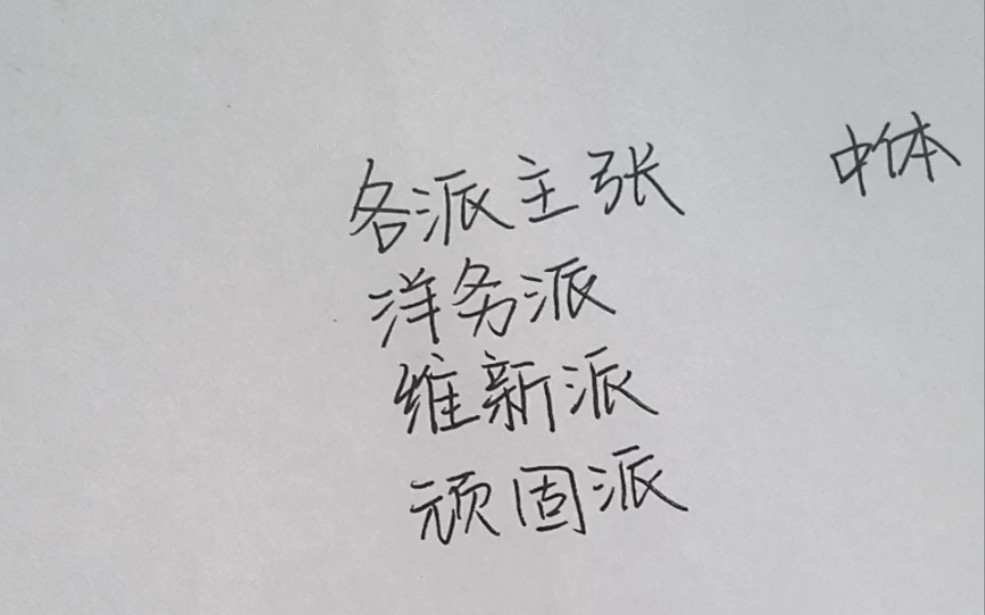 各派主张
中体
洋务派
维新派
顽固派